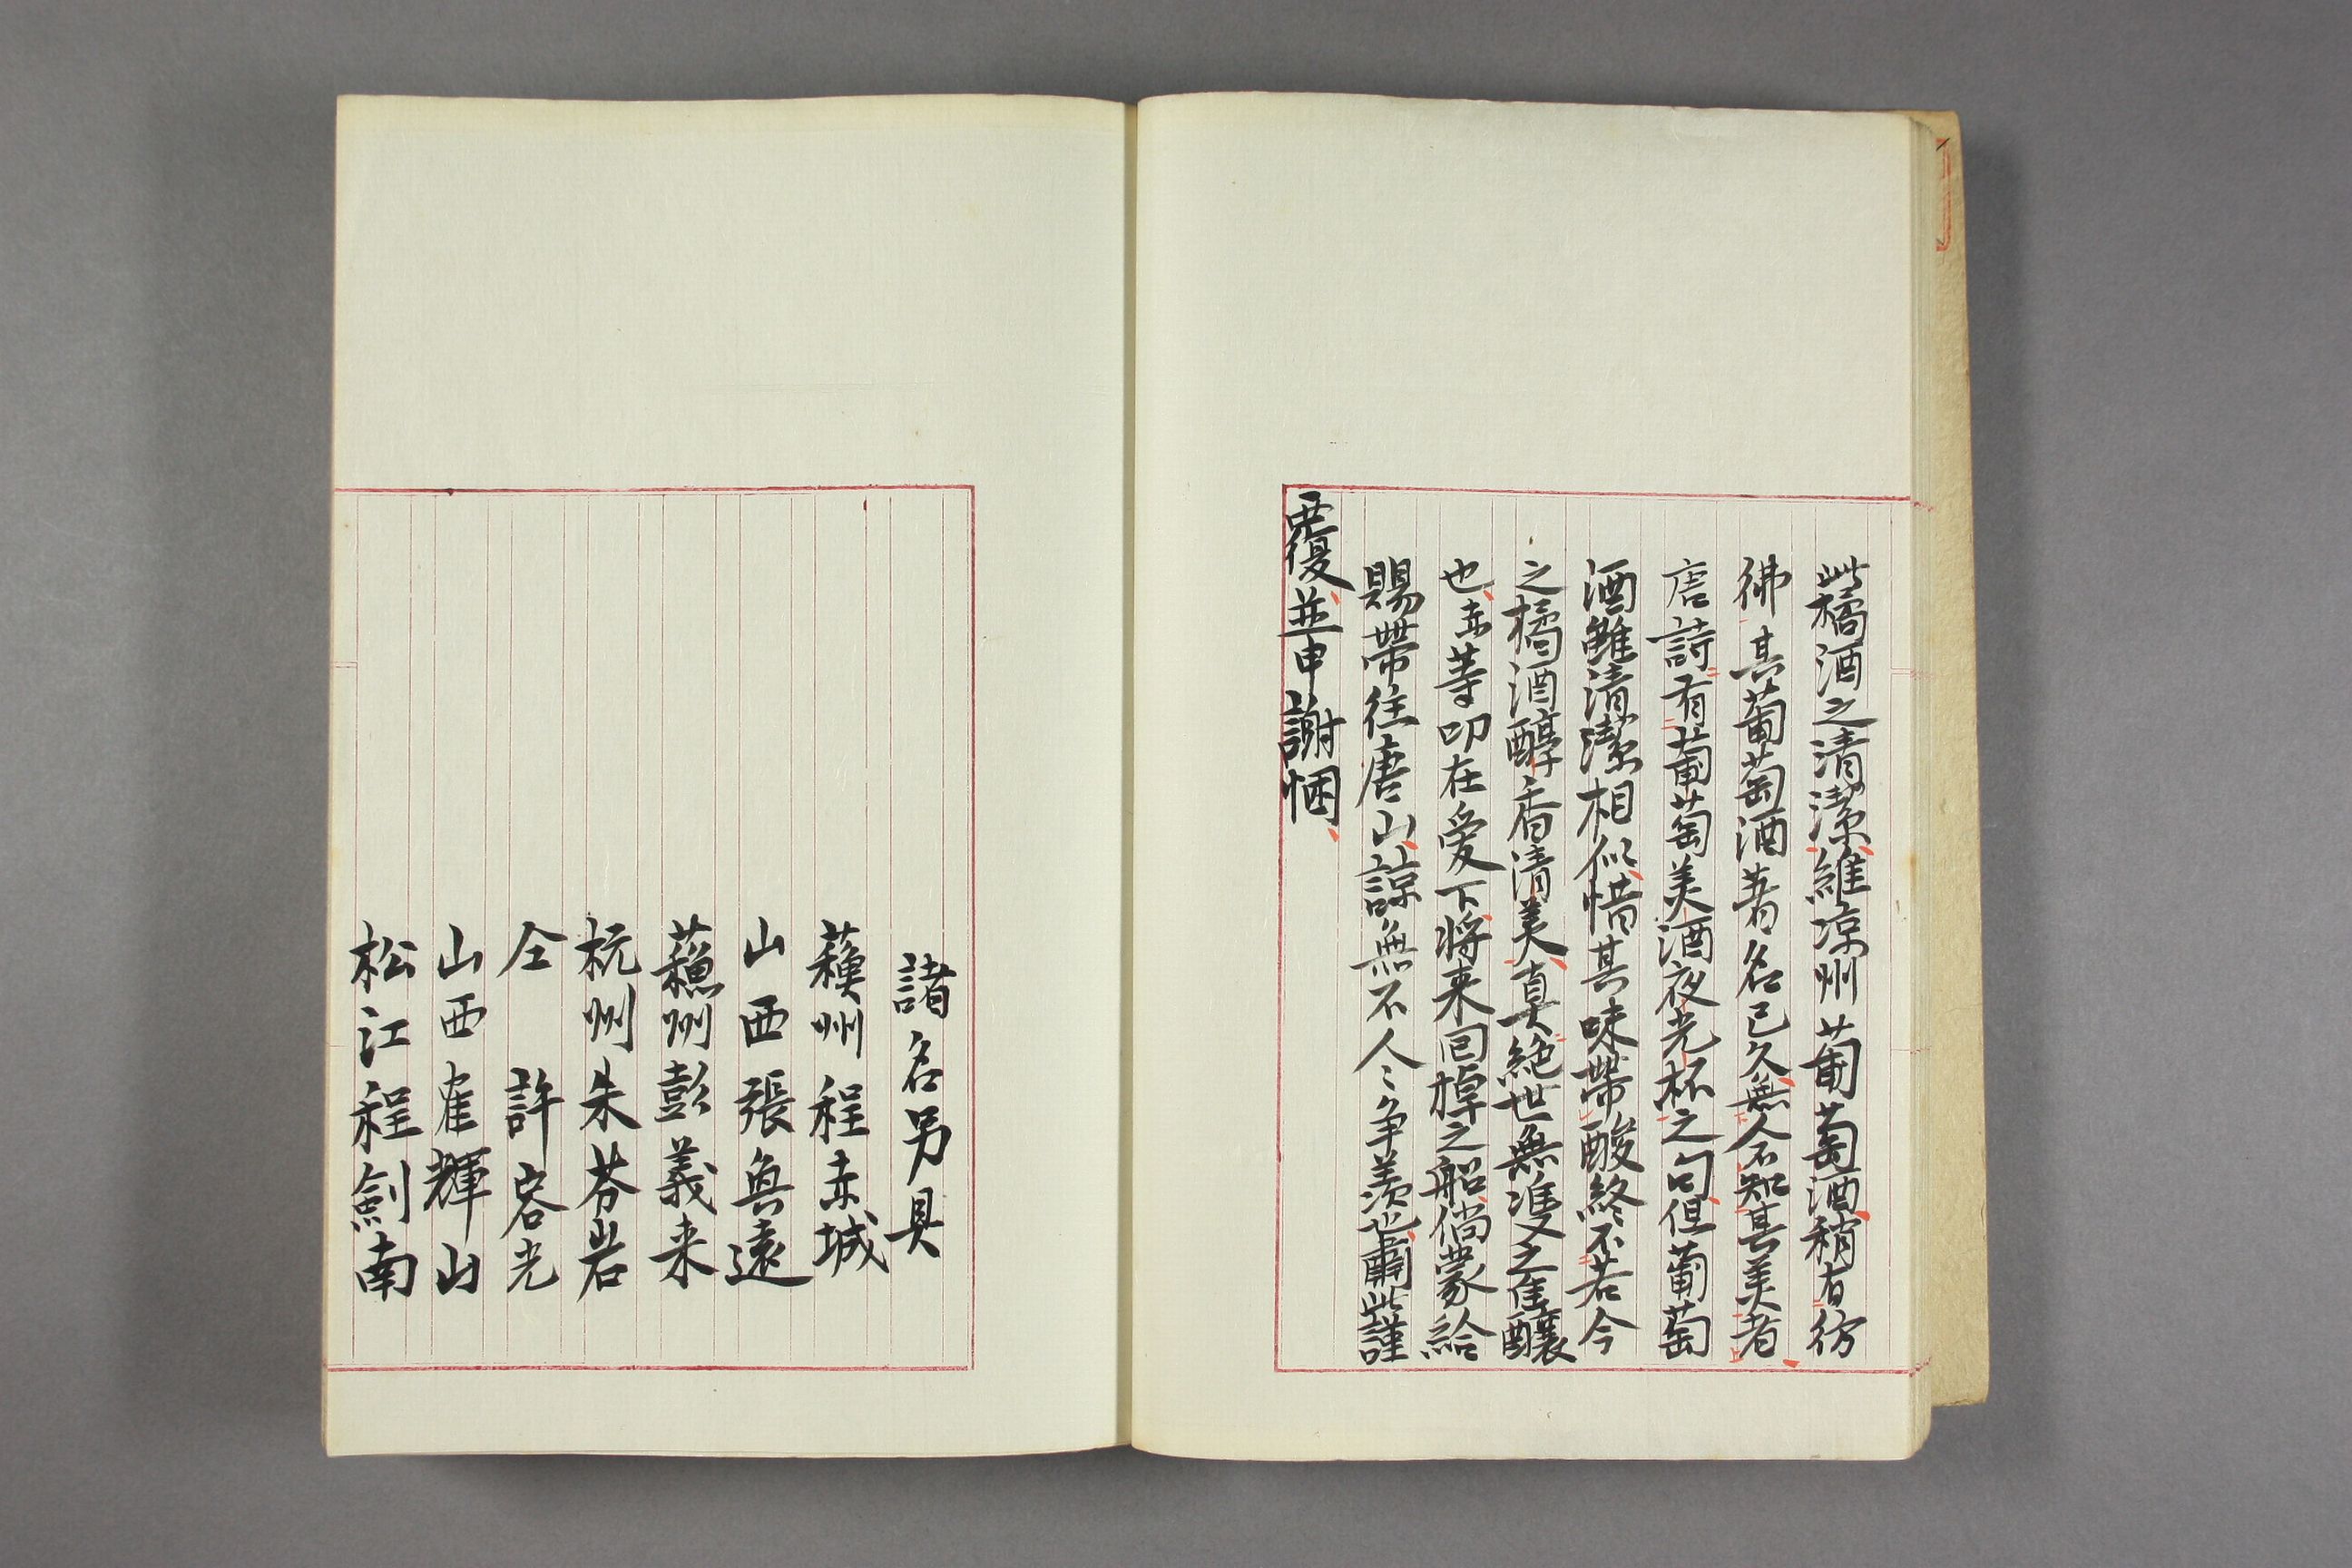 此橘酒之清潔維涼州葡萄酒稍有彷
彿其葡萄酒著名已久無人不知其美者
唐詩有葡萄美酒夜光杯之句但葡萄
酒雖清潔相似惜其味帶酸終不若今
之橘酒醇香清美真絶世無雙之佳釀
也赤等叨在愛下將来回棹之船倘蒙給
賜帶往唐山諒無不人々争羨也肅此謹
覆並申謝悃
諸名另具
蘇州程赤城
山西張奐遠
蘓州彭義来
杭州朱芬岩
仝許容光
山西崔輝山
松江程劍南